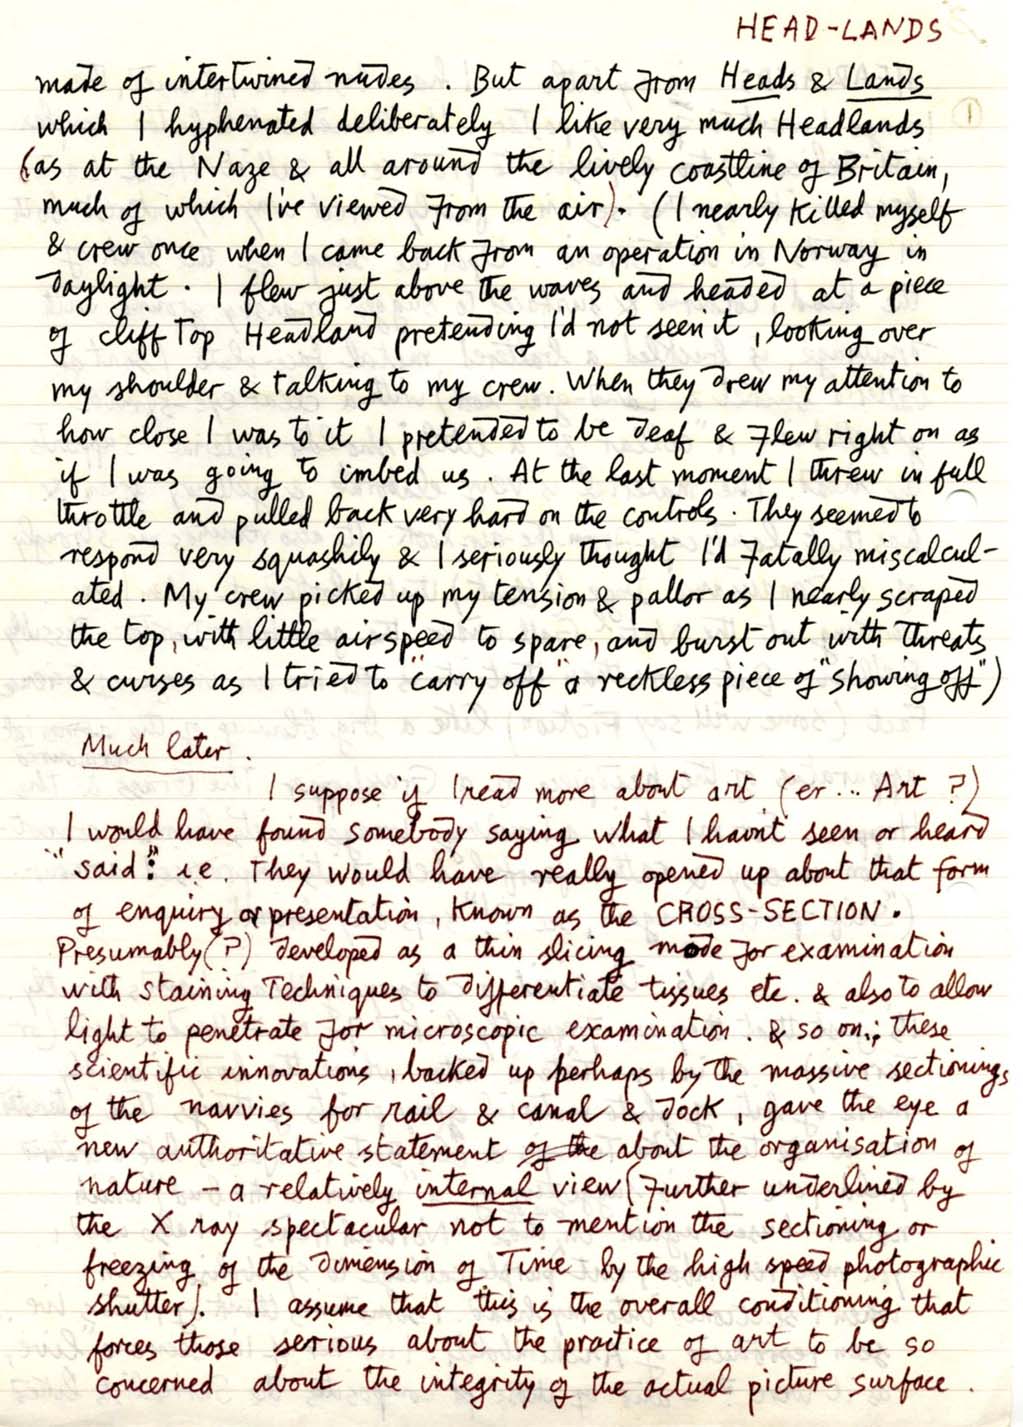 HEAD-LANDS
made of intertwined nudes. But apart from Heads & Lands
which I hyphenated deliberately I like very much Headlands 1
(as at the Naze & all around the lively coastline of Britain,
much of which I've viewed from the air). (I nearly killed myself
& crew once when I came back from an operation in Norway in
daylight. I flew just above the waves and headed at a piece
of cliff Top Headland pretending I'd not seen it, looking over
my shoulder & talking to my crew. When they drew my attention to
how close I was to it I pretended to be deaf & flew right on as
if I was going to imbed us. At the last moment I threw in full
throttle and pulled back very hard on the controls. They seemed to
respond very squashily & I seriously thought I'd fatally miscalcul-
ated. My crew picked up my tension & pallor as I nearly scraped
the top, with little airspeed to spare, and burst out with threats
& curses as I tried to "carry off" a reckless piece of "showing off")
Much later.
I suppose if I read more about art (er... Art?)
I would have found somebody saying what I havnt seen or heard
"said": i.e. They would have really opened up about that form
of enquiry or presentation, known as the CROSS-SECTION.
Presumably(?) developed as a thin slicing mode for examination
with staining Techniques to differentiate tissues etc. & also to allow
light to penetrate for microscopic examination. & so on; these
scientific innovations, backed up perhaps by the massive sectionings
of the navvies for rail & canal & dock, gave the eye a
new authoritative statement of the about the organisation of
nature - a relatively internal view (further underlined by
the X ray spectacular not to mention the sectioning or
freezing of the dimension of Time by the high speed photographic
shutter). I assume that this is the overall conditioning that
forces those serious about the practice of art to be so
concerned about the integrity of the actual picture surface.